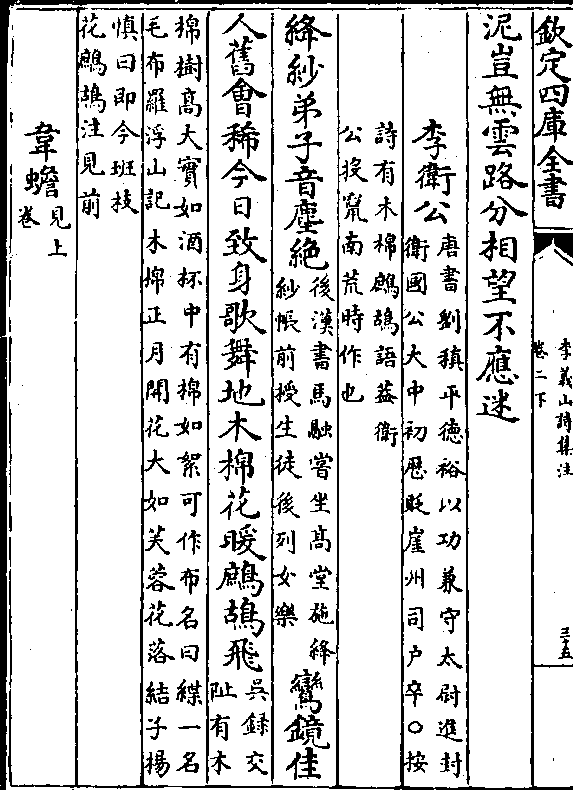 欽定四庫全書
李義山詩集注
卷二下
三五
泥豈無雲路分相望不應迷
李衛公
唐書劉稹平德裕以功兼守太尉進封
衛國公大中初歷貶崖州司户卒○按
詩有木棉鷓鴣語蓋衛
公投竄南荒時作也
絳紗弟子音塵絶
後漢書馬融嘗坐高堂施絳
紗帳前授生徒後列女樂
鸞鏡佳
人舊會稀今日致身歌舞地木棉花暖鷓鴣飛
吳錄交
阯有木
棉樹高大實如酒杯中有棉如絮可作布名曰緤一名
毛布羅浮山記木棉正月開花大如芙蓉花落結子楊
慎曰即今班枝
花鷓鴣注見前
韋蟾
見上
卷